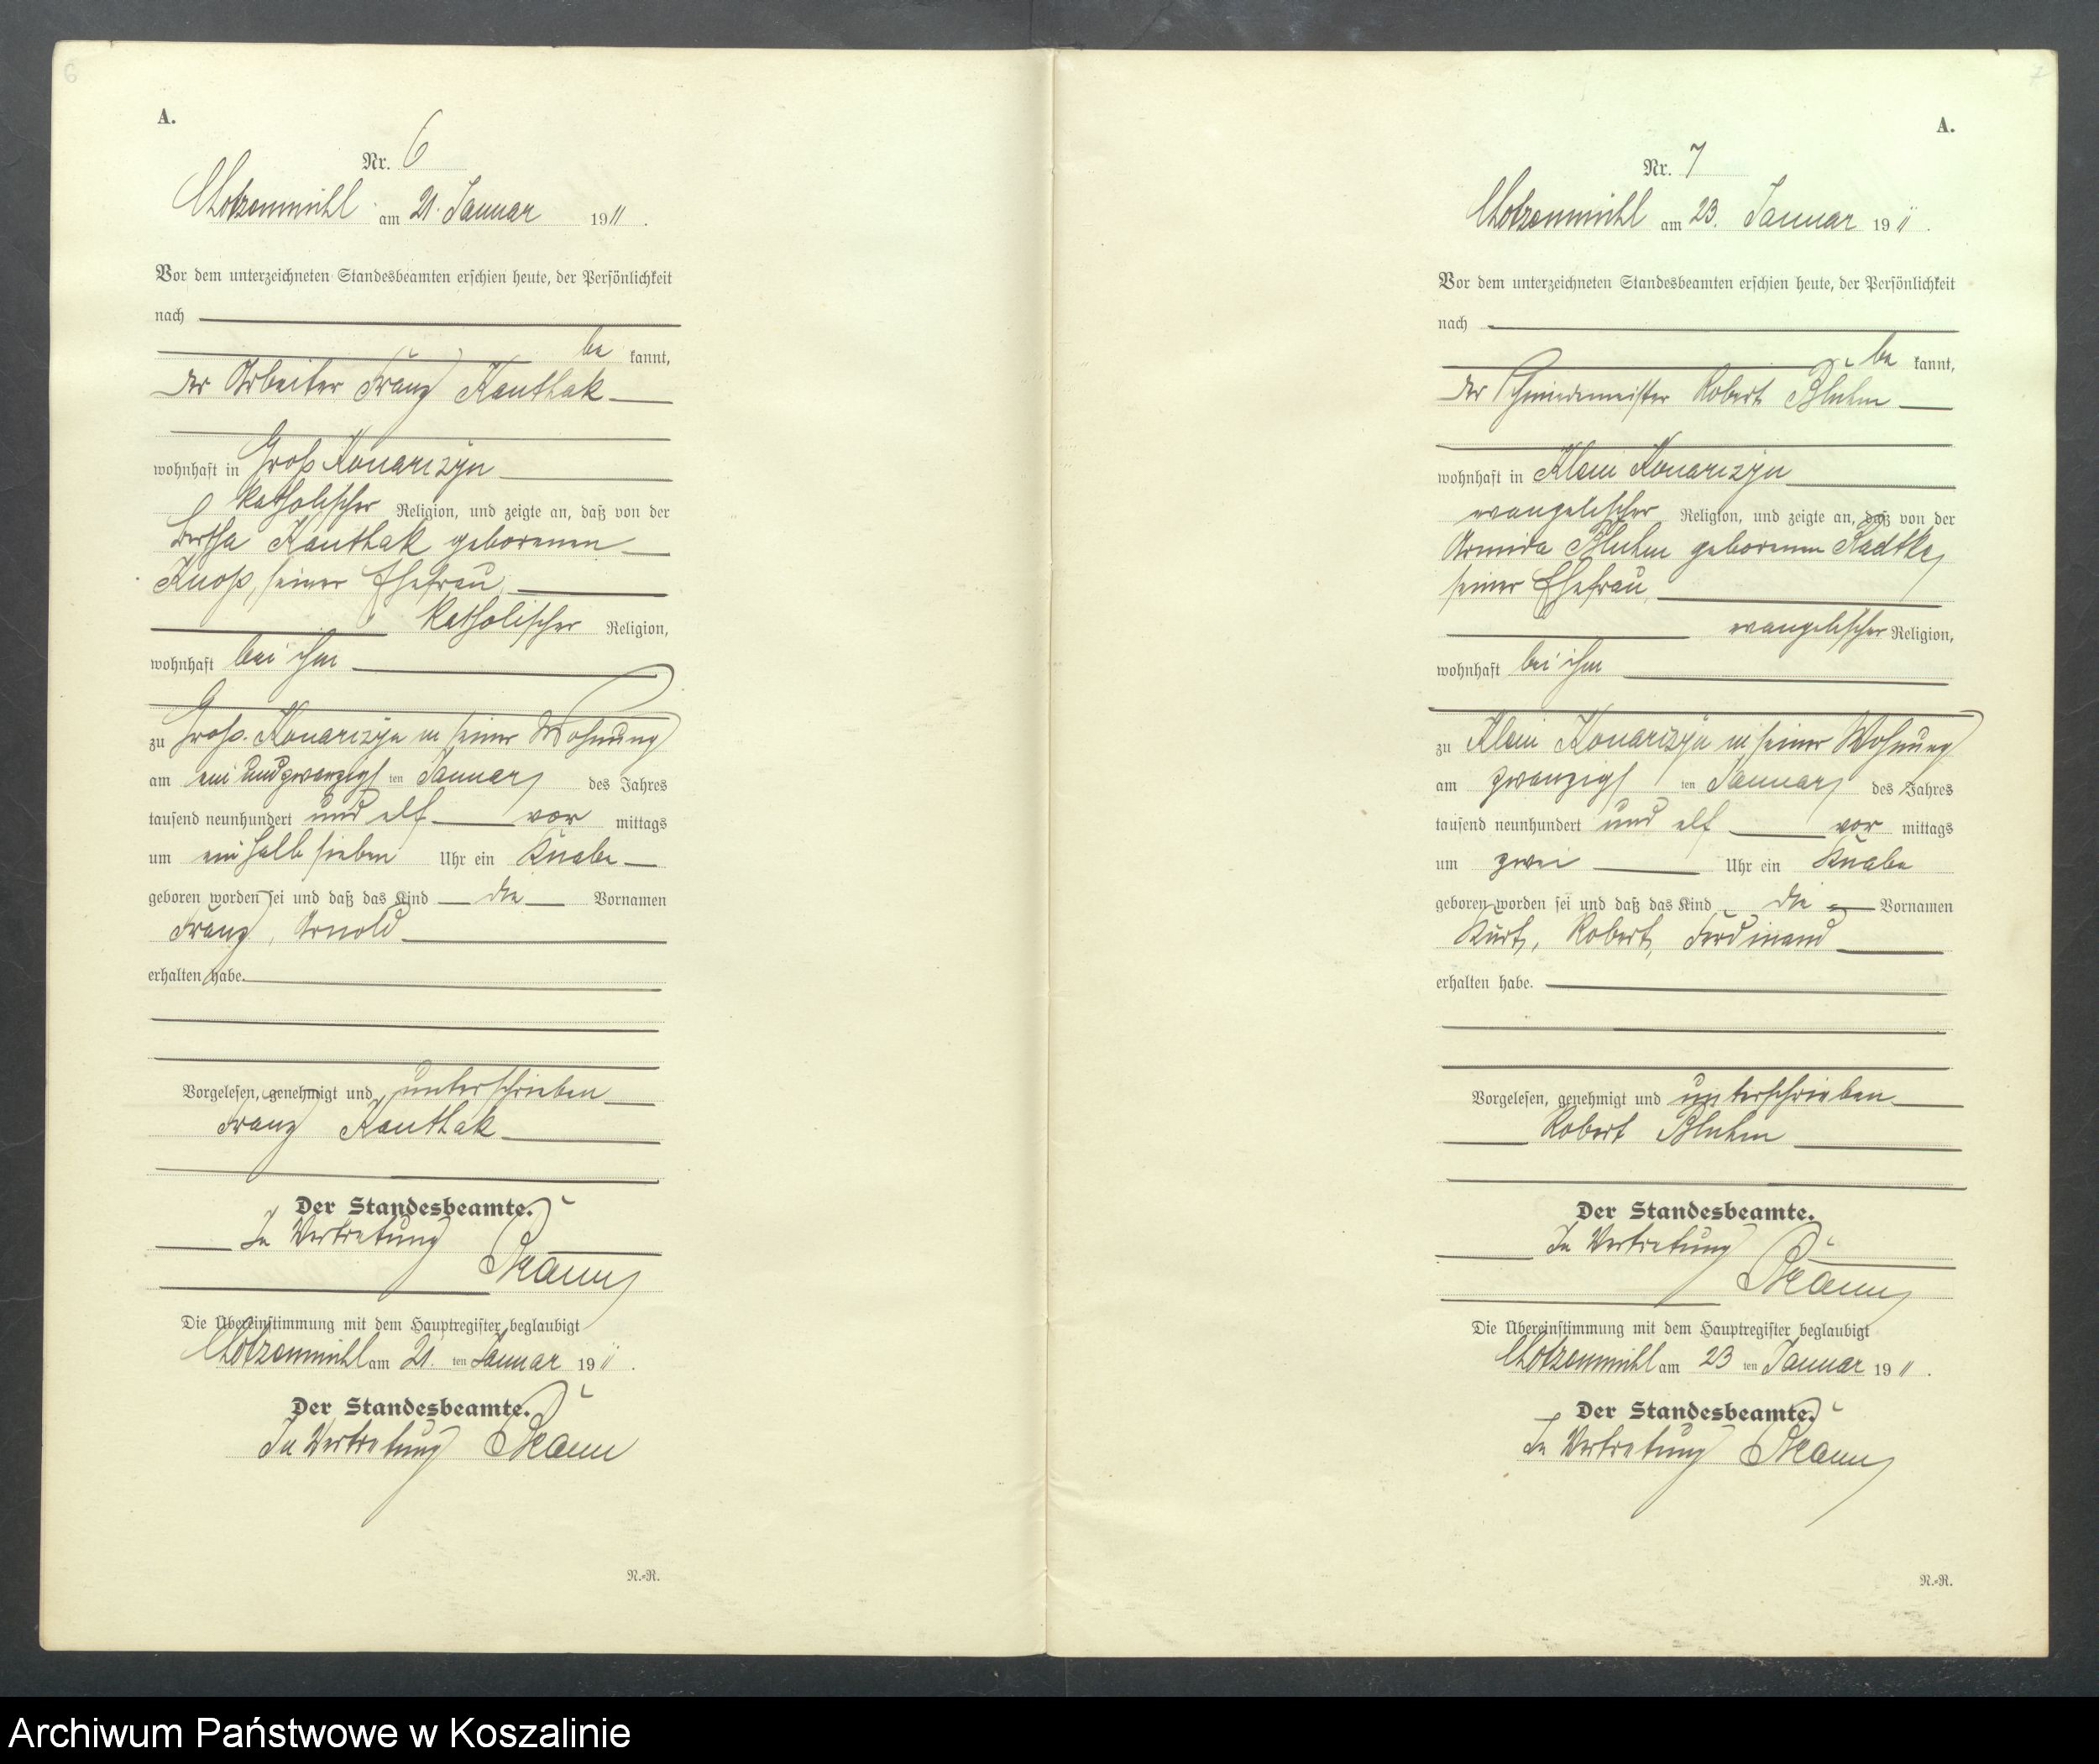 6
A.
Nr. 6
Chotzenmühl am 21. Januar 1911.
Vor dem unterzeichneten Standesbeamten erschien heute, der Persönlichkeit
nach
be kannt,
der Arbeiter Franz Kauthak
wohnhaft in Groß Konarczyn
katholischer Religion, und zeigte an, daß von der
Bertha Kauthak geborenen
Knop, seiner Ehefrau,
katholischer Religion,
wohnhaft bei ihm
zu Groß. Konarczyn in seiner Wohnung
am ein und zwanzigsten Januar des Jahres
tausend neunhundert und elf vor mittags
um ein halb sieben Uhr ein Knabe
geboren worden sei und daß das Kind die Vornamen
Franz, Arnold
erhalten habe.
Vorgelesen, genehmigt und unterschrieben
Franz Kauthak
Der Standesbeamte.
In Vertretung
Die Übereinstimmung mit dem Hauptregister beglaubigt
Chotzenmühl am 21. ten Januar 1911.
Der Standesbeamte.
In Vertretung
N.-R.
7
A.
Nr. 7
Chotzenmühl am 23. Januar 1911.
Vor dem unterzeichneten Standesbeamten erschien heute, der Persönlichkeit
nach
be kannt,
der Schmiedemeister Robert Bluhm
wohnhaft in Klein Konarczyn
evangelischer Religion, und zeigte an, daß von der
Armida Bluhm geborenen Radtke,
seiner Ehefrau,
evangelischer Religion,
wohnhaft bei ihm
zu Klein Konarczyn in seiner Wohnung
am zwanzigsten Januar des Jahres
tausend neunhundert und elf vor mittags
um zwei Uhr ein Knabe
geboren worden sei und daß das Kind die Vornamen
Kurt, Robert, Ferdinand
erhalten habe.
Vorgelesen, genehmigt und unterschrieben
Robert Bluhm
Der Standesbeamte.
In Vertretung
Die Übereinstimmung mit dem Hauptregister beglaubigt
Chotzenmühl am 23 ten Januar 1911.
Der Standesbeamte.
In Vertretung
N.-R.
Archiwum Państwowe w Koszalinie